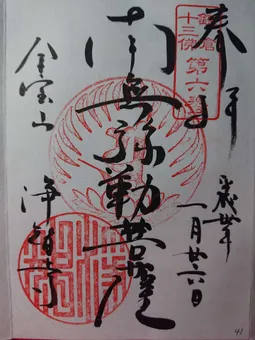 奉拝
鎌倉
十三佛
第六番
平成卅年
一月廿六日
南無弥勒菩薩
金宝山
浄智寺
41